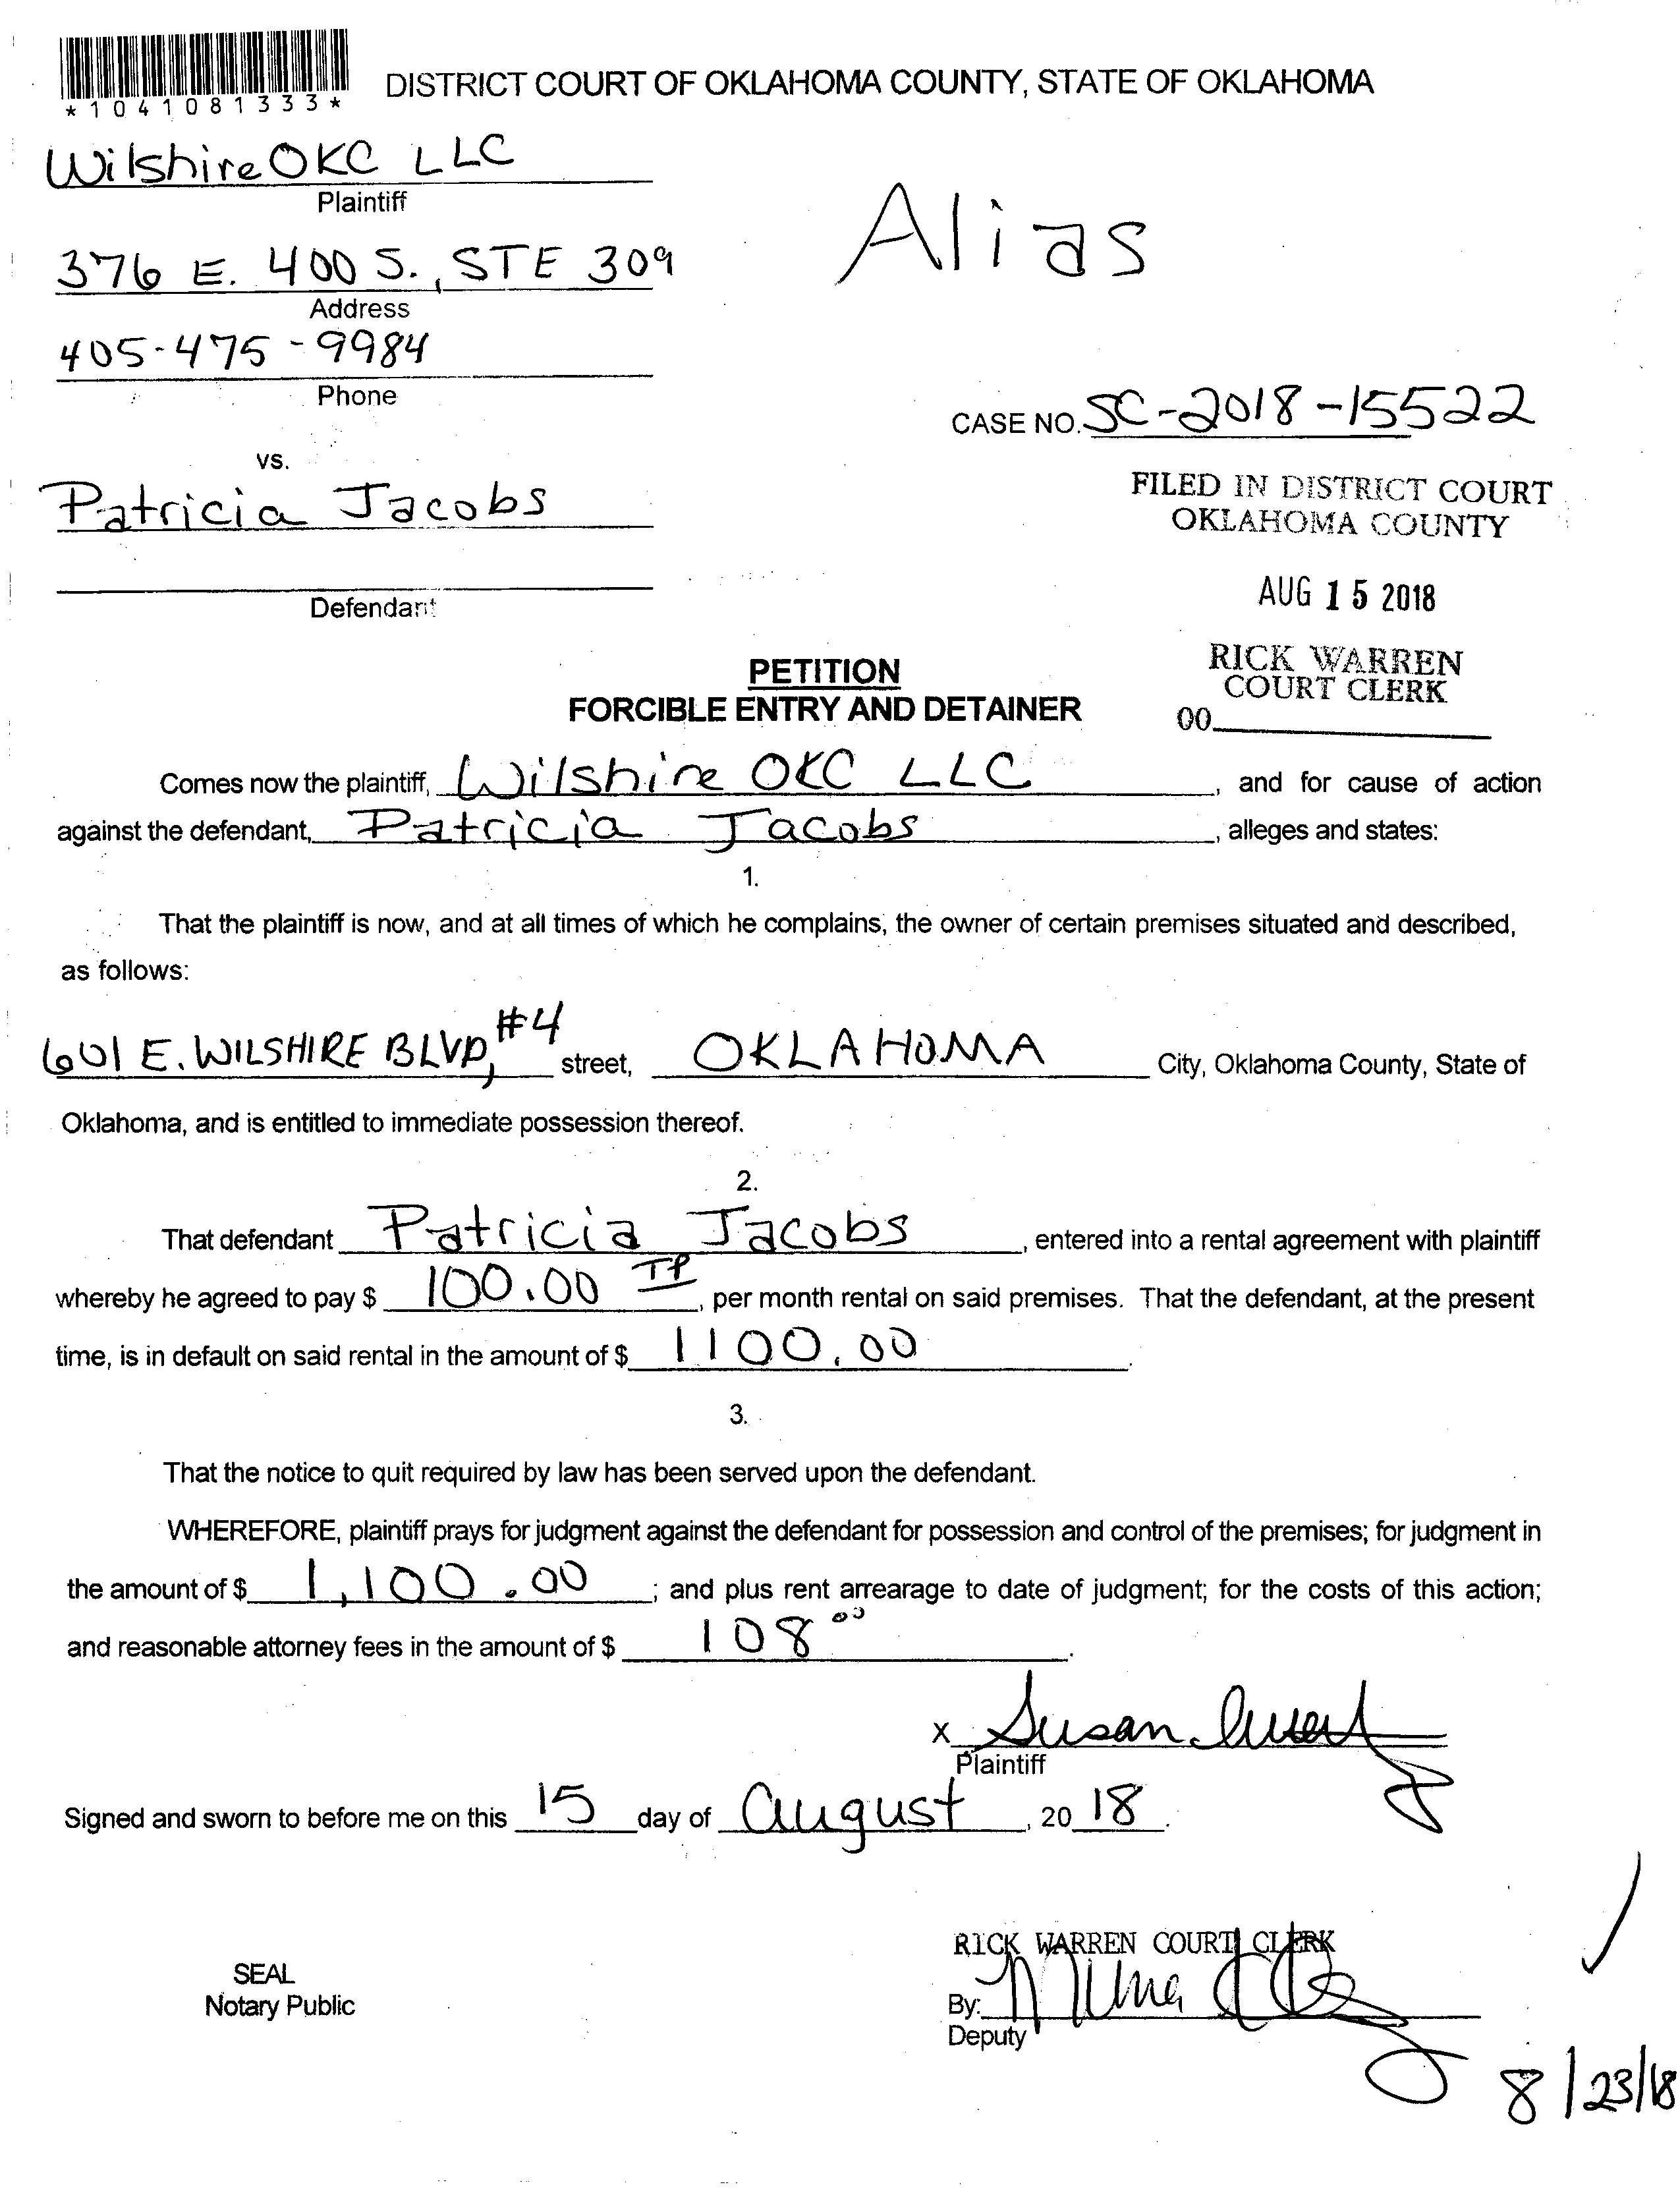 *1041081333*
DISTRICT COURT OF OKLAHOMA COUNTY, STATE OF OKLAHOMA
Wilshire OKC LLC
Plaintiff
Alias
376 E. 400 S., STE 309
Address
405-475-9984
Phone
CASE NO. SC-2018-15522
vs.
Patricia Jacobs
FILED IN DISTRICT COURT
OKLAHOMA COUNTY
AUG 15 2018
Defendant
RICK WARREN
COURT CLERK
00
PETITION
FORCIBLE ENTRY AND DETAINER
Comes now the plaintiff, Wilshire OKC LLC, and for cause of action
against the defendant, Patricia Jacobs, alleges and states:
1.
That the plaintiff is now, and at all times of which he complains, the owner of certain premises situated and described,
as follows:
601 E. WILSHIRE BLVD, #4 street, OKLAHOMA City, Oklahoma County, State of
Oklahoma, and is entitled to immediate possession thereof.
2.
That defendant Patricia Jacobs, entered into a rental agreement with plaintiff
whereby he agreed to pay $ 100.00 TP, per month rental on said premises. That the defendant, at the present
time, is in default on said rental in the amount of $ 1100.00.
3.
That the notice to quit required by law has been served upon the defendant.
WHEREFORE, plaintiff prays for judgment against the defendant for possession and control of the premises; for judgment in
the amount of $ 1,100.00; and plus rent arrearage to date of judgment; for the costs of this action;
and reasonable attorney fees in the amount of $ 108 00.
X Susan
Plaintiff
Signed and sworn to before me on this 15 day of August, 20 18.
RICK WARREN COURT CLERK
SEAL
Notary Public
By:
Deputy
8/23/18